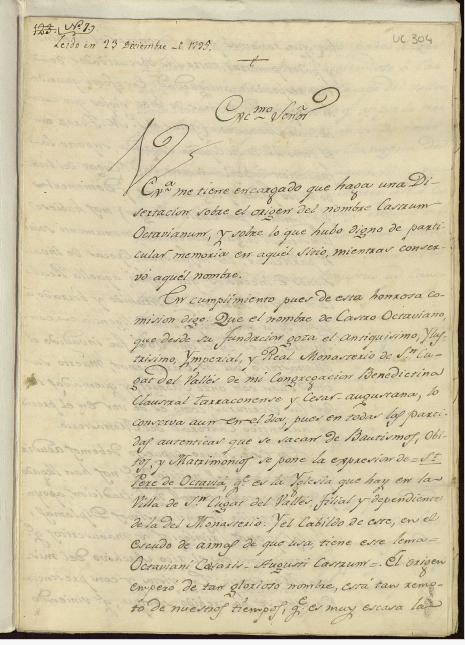 Nº 7.
UC 304
Leido en 23 Diciembre de 1795.
Excmo Señor
V
Exa me tiene encargado que haga una Di-
sertacion sobre el origen del nombre Castrum
Octavianum, y sobre lo que hubo digno de parti-
cular memoria en aquel sitio, mientras conser-
vó aquél nombre.
En cumplimiento pues de esta honrosa co-
mision digo: Que el nombre de Castro Octaviano,
que desde su fundacion goza el antiquisimo, Ylus-
trisimo, Ymperial, y Real Monasterio de Sn. Cu-
gat del Vallés de mi Congregacion Benedictina
Claustral Tarraconense y Cesar-augustana, lo
conserva aun en el dia, pues en todas las parti-
das autenticas que se sacan de Bautismos, Obi-
tos, y Matrimonios se pone la expresion de = St.
Pere de Octaviá, qe. es la Yglesia que hay en la
Villa de Sn. Cugat del Vallés filial y dependiente
de la del Monasterio: Y el Cabildo de este, en el
escudo de armas de que usa, tiene este lema =
Octaviani Cæsaris Augusti Castrum =. El origen
emperó de tan glorioso nombre, está tan remo-
to de nuestros tiempos, qe. es muy escasa la